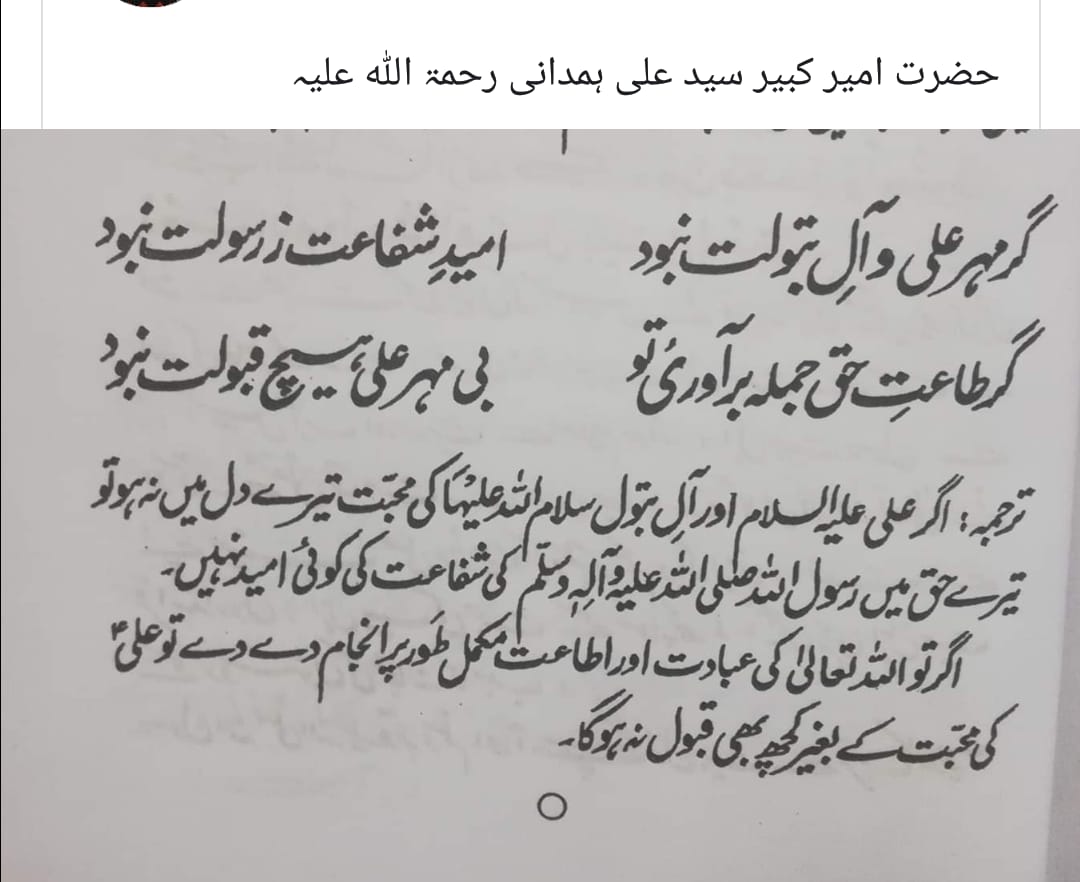 حضرت امیر کبیر سید علی ہمدانی رحمۃ اللہ علیہ
گر مہر علی و آلِ بتولت نبود امیدِ شفاعت ز رسولت نبود
گر طاعتِ حق جملہ بر آوریٔ تو بی مہر علی، ہیچ قبولت نبود
ترجمہ: اگر علی علیہ السلام اور آلِ بتول سلام اللہ علیہا کی محبّت تیرے دل میں نہ ہو تو
تیرے حق میں رسول اللہ صلی اللہ علیہ وآلہٖ وسلّم کی شفاعت کی کوئی امید نہیں۔
اگر تو اللہ تعالیٰ کی عبادت اور اطاعت مکمل طور پر انجام دے دے تو علیؑ
کی محبّت کے بغیر کچھ بھی قبول نہ ہوگا۔